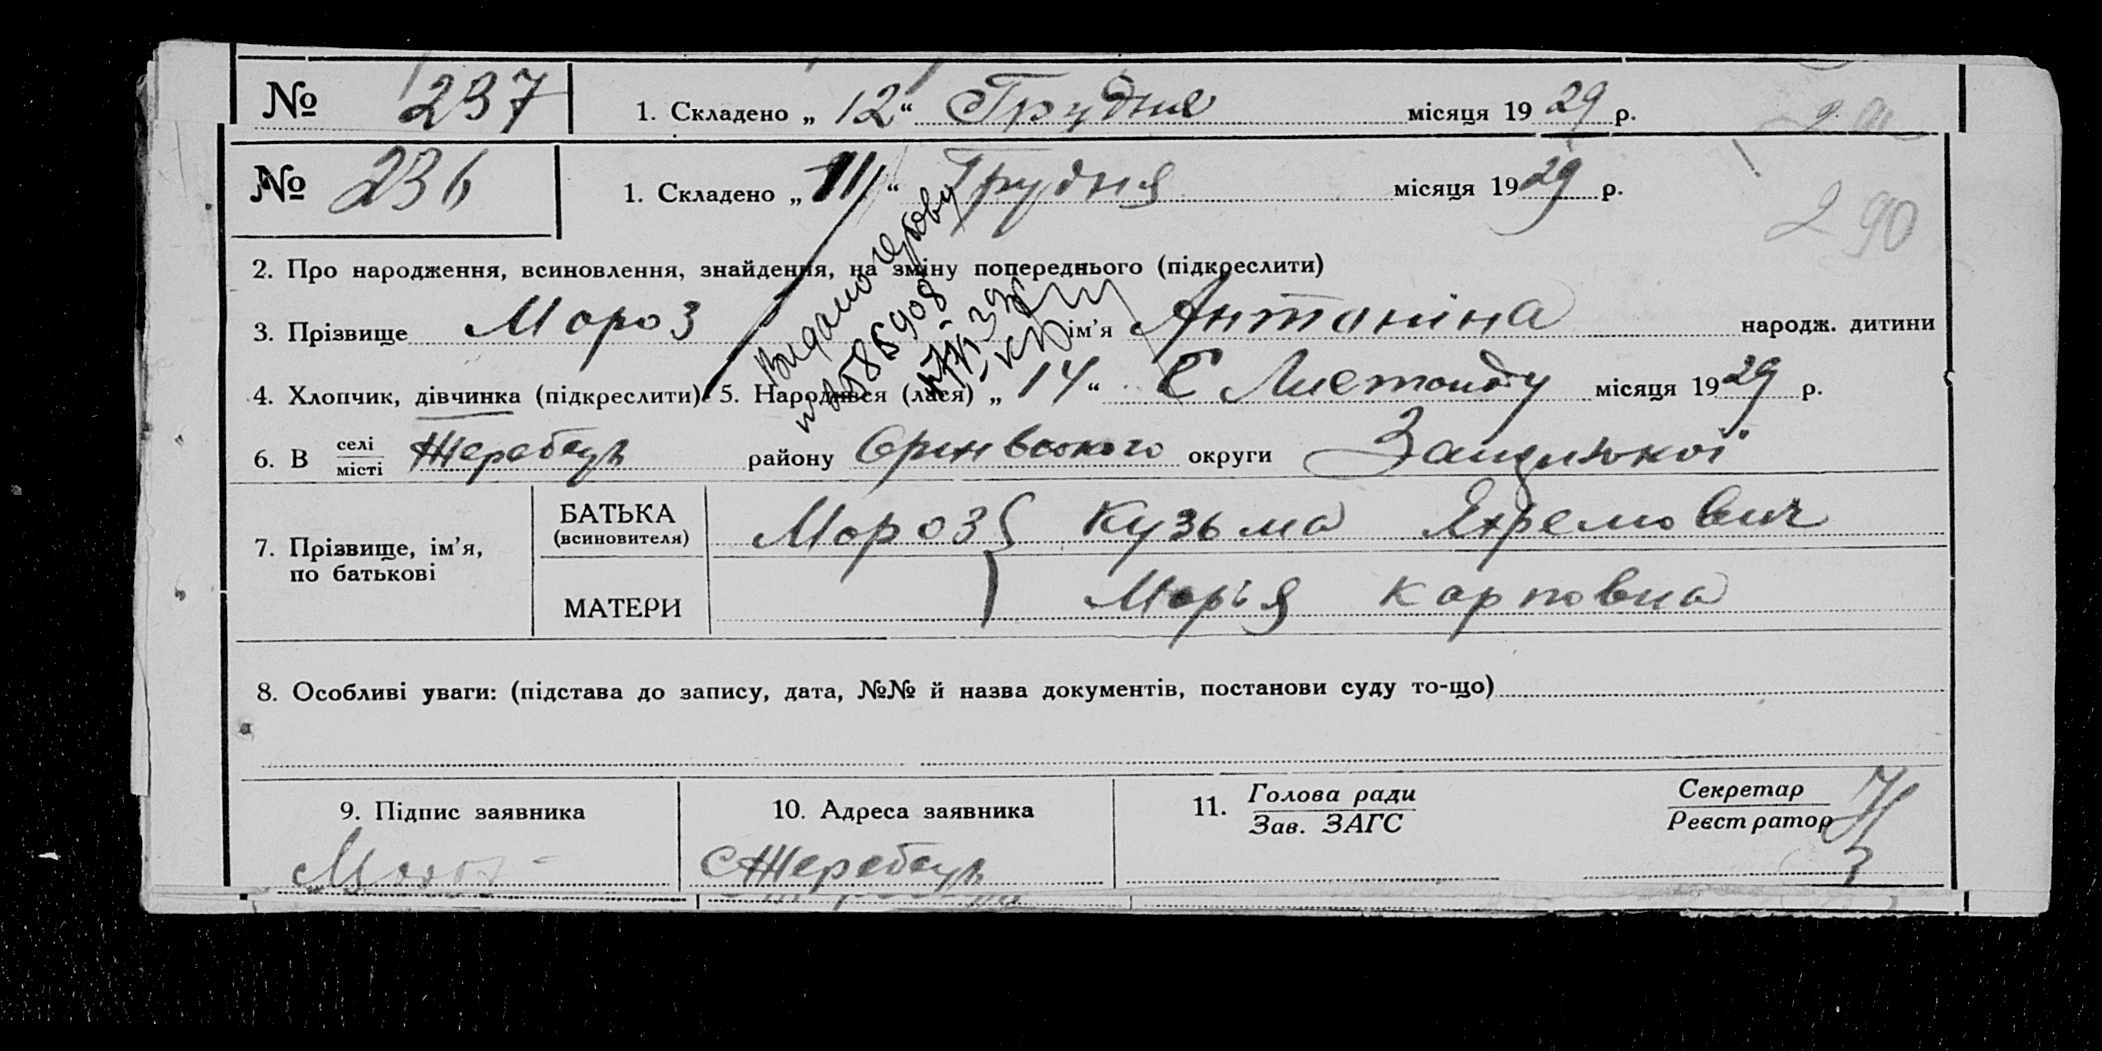 № 237 1. Складено „ 12 “ Грудня місяця 19 29 р.
№ 236 1. Складено „ 11 “ Грудня місяця 19 29 р.
290
2. Про народження, всиновлення, знайдення, на зміну попереднього (підкреслити)
3. Прізвище Мороз ім’я Антоніна народж. дитини
4. Хлопчик, дівчинка (підкреслити). 5. Народився (лася) „ 14 “ Листопаду місяця 19 29 р.
6. В селі/місті Жеребець району округи
7. Прізвище, ім’я, по батькові
БАТЬКА (всиновителя) Мороз Кузьма Яхремович
МАТЕРИ Марія Карповна
8. Особливі уваги: (підстава до запису, дата, №№ й назва документів, постанови суду то-що)
9. Підпис заявника 10. Адреса заявника 11. Голова ради / Зав. ЗАГС Секретар / Реєстратор
Мороз С Жеребець